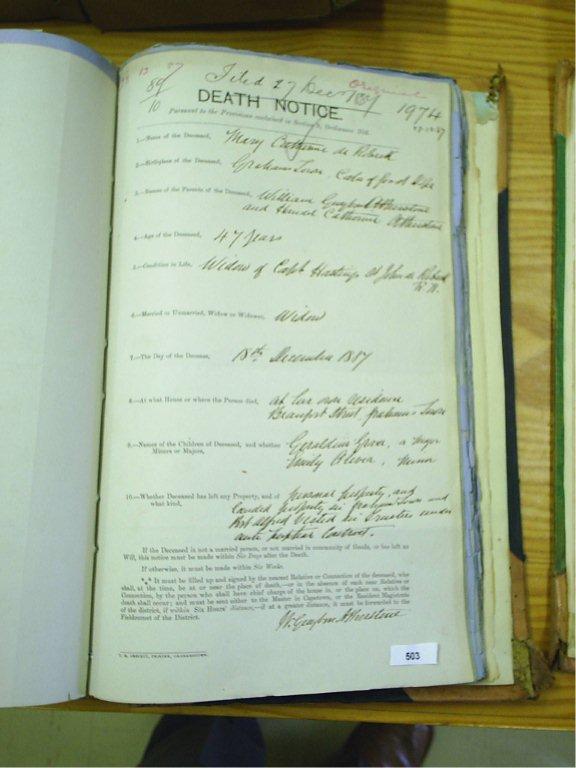 13 87
89/10
Filed 27 Dec 1887
Original
1974
27.12.87
DEATH NOTICE.
Pursuant to the Provisions contained in Section 9, Ordinance 104.
1.—Name of the Deceased, Mary Catherine de Robeck
2.—Birthplace of the Deceased, Grahams Town, Cape of Good Hope
3.—Names of the Parents of the Deceased, William Guybon Atherstone
and Catherine Atherstone
4.—Age of the Deceased, 47 years
5.—Condition in Life, Widow of Capt Hastings St John de Robeck
R. N.
6.—Married or Unmarried, Widow or Widower, Widow
7.—The Day of the Decease, 18th December 1887
8.—At what House or where the Person died, At her own residence
Beaufort Street Grahams Town
9.—Names of the Children of Deceased, and whether Minors or Majors, Geraldine Grace, a major
Emily Oliva, minor
10.—Whether Deceased has left any Property, and of what kind, personal property, and
Landed property in Grahams Town and
Port Alfred vested in Trustees under
ante nuptial contract.
If the Deceased is not a married person, or not married in community of Goods, or has left no
Will, this notice must be made within Six Days after the Death.
If otherwise, it must be made within Six Weeks.
*** It must be filled up and signed by the nearest Relative or Connection of the deceased, who
shall, at the time, be at or near the place of death,—or in the absence of such near Relative or
Connection, by the person who shall have chief charge of the house in, or the place on, which the
death shall occur; and must be sent either to the Master in Capetown, or the Resident Magistrate
of the district, if within Six Hours' distance,—if at a greater distance, it must be forwarded to the
Fieldcornet of the District.
W. Guybon Atherstone
503